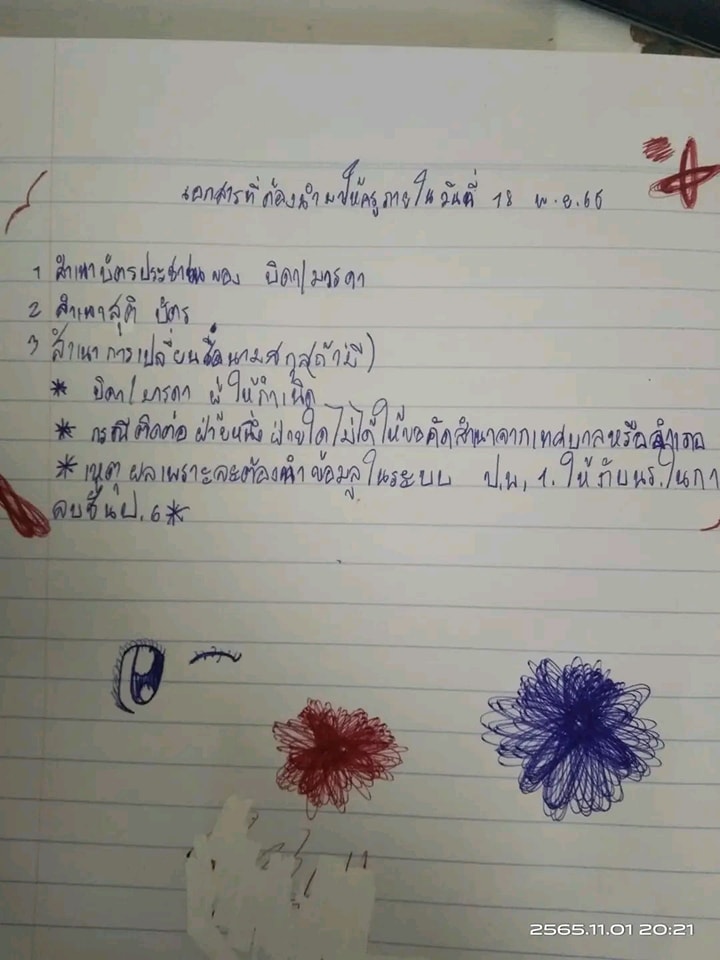 เอกสารที่ต้องนำมาให้ครูภายในวันที่ 18 พ.ย.65
1 สำเนาบัตรประชาชนของ บิดา/มารดา
2 สำเนาสูติ บัตร
3 สำเนาการเปลี่ยนชื่อนามสกุล(ถ้ามี)
* บิดา/มารดา ผู้ให้กำเนิด
* กรณีติดต่อฝ่ายหนึ่งฝ่ายใดไม่ได้ให้ขอคัดสำเนาจากเทศบาลหรืออำเภอ
* เหตุผลเพราะจะต้องนำข้อมูลในระบบ ป.พ.1.ให้กับนร.ในกา
จบชั้นป.6*
2565.11.01 20:21